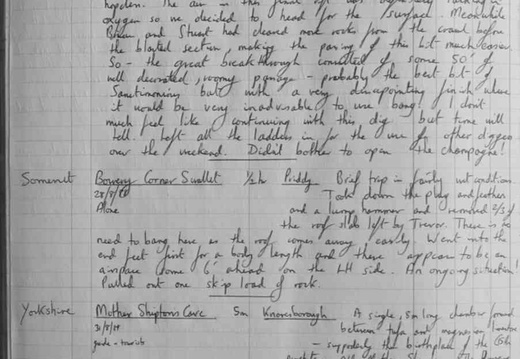 hopden. The air in this final bit was
oxygen so we decided to head for the surface. Meanwhile
Brian and Stuart had cleared more rocks from the crawl before
the blasted section, making the passing of this bit much easier.
So - the great breakthrough consisted of some 50' of
well decorated, roomy passage - probably the best bit of
Sanctimonious but with a very disappointing finish where
it would be very inadvisable to use bang! I don't
much feel like continuing with this dig but time will
tell. Left all the ladders in for the use of other diggers
over the weekend. Didn't bother to open the champagne!
Somerset Bowery Corner Swallet 1/2 hr Priddy Brief trip in fairly wet conditions.
Took down the plug and feathers
Alone and a lump hammer and removed 2/3 of
the roof slab left by Trevor. There is no
need to bang here as the roof comes away easily. Went into the
end feet first for a body length and there appears to be an
airspace some 6' ahead on the LH side. An ongoing situation!
Pulled out one skip load of rock.
Yorkshire Mother Shiptons Cave 5m Knaresborough A single, 5m long chamber found
between tufa and magnesian limestone
guide - tourists - supposedly the birthplace of the